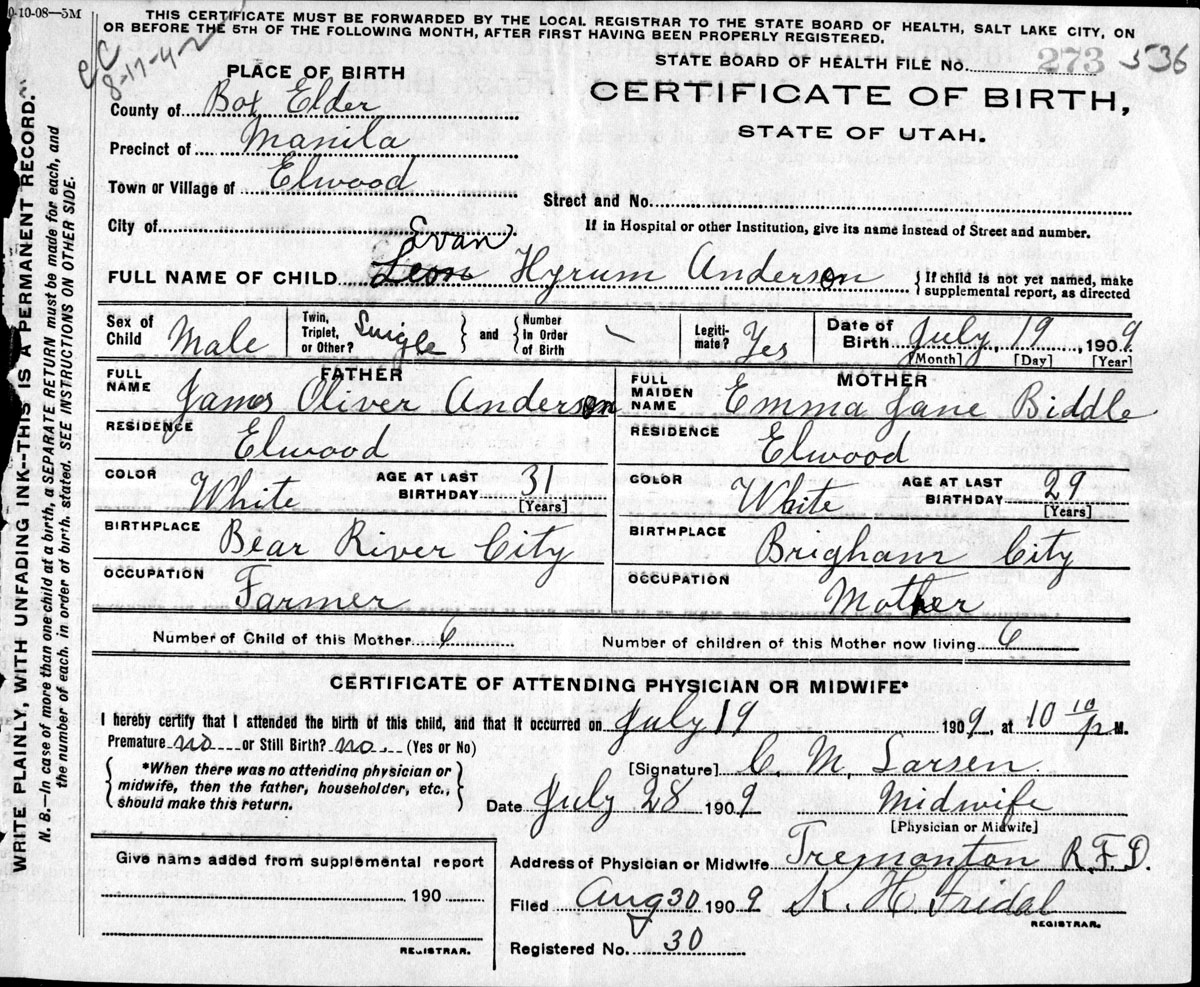 0-10-08—5M
THIS CERTIFICATE MUST BE FORWARDED BY THE LOCAL REGISTRAR TO THE STATE BOARD OF HEALTH, SALT LAKE CITY, ON
OR BEFORE THE 5TH OF THE FOLLOWING MONTH, AFTER FIRST HAVING BEEN PROPERLY REGISTERED.
8-17-42
STATE BOARD OF HEALTH FILE NO. 273 536
CERTIFICATE OF BIRTH,
STATE OF UTAH.
PLACE OF BIRTH
County of Box Elder
Precinct of Manila
Town or Village of Elwood
Street and No.
City of
If in Hospital or other Institution, give its name instead of Street and number.
Evan
FULL NAME OF CHILD Leon Hyrum Anderson
{If child is not yet named, make
supplemental report, as directed
Sex of Child Male
Twin, Triplet, or Other? Single } and { Number in Order of Birth —
Legiti-mate? Yes
Date of Birth July 19, 1909
[Month] [Day] [Year]
FATHER
FULL NAME James Oliver Anderson
RESIDENCE Elwood
COLOR White AGE AT LAST BIRTHDAY 31 [Years]
BIRTHPLACE Bear River City
OCCUPATION Farmer
MOTHER
FULL MAIDEN NAME Emma Jane Biddle
RESIDENCE Elwood
COLOR White AGE AT LAST BIRTHDAY 29 [Years]
BIRTHPLACE Brigham City
OCCUPATION Mother
Number of Child of this Mother 6 Number of children of this Mother now living 6
CERTIFICATE OF ATTENDING PHYSICIAN OR MIDWIFE*
I hereby certify that I attended the birth of this child, and that it occurred on July 19 1909, at 10 10/P M.
Premature no or Still Birth? no (Yes or No)
{*When there was no attending physician or
midwife, then the father, householder, etc.,
should make this return.}
[Signature] C. M. Larsen
Date July 28 1909 Midwife
[Physician or Midwife]
Give name added from supplemental report
190
REGISTRAR.
Address of Physician or Midwife Tremonton R.F.D.
Filed Aug 30 1909 K. H. Fridal
REGISTRAR.
Registered No. 30
WRITE PLAINLY, WITH UNFADING INK--THIS IS A PERMANENT RECORD.
N. B.—In case of more than one child at a birth, a SEPARATE RETURN must be made for each, and
the number of each, in order of birth, stated. SEE INSTRUCTIONS ON OTHER SIDE.